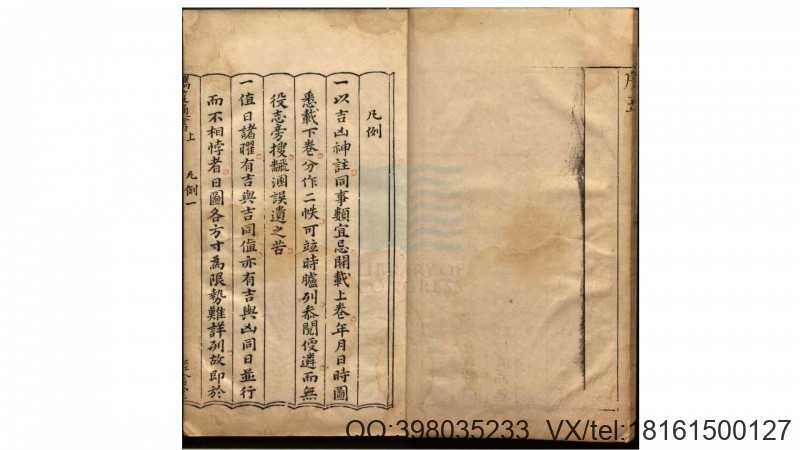 凡例
一以吉凶神註同事類宜忌開載上卷年月日時圖
悉載下卷分作二帙可竝時臚列叅閱便遴而無
役志旁搜飜溷誤遺之苦
一值日諸曜有吉與吉同值亦有吉與凶同日並行
而不相悖者日圖各方寸為限勢難詳列故即於
上 凡例一
LIBRARY OF CONGRESS
QQ:398035233 VX/tel:18161500127